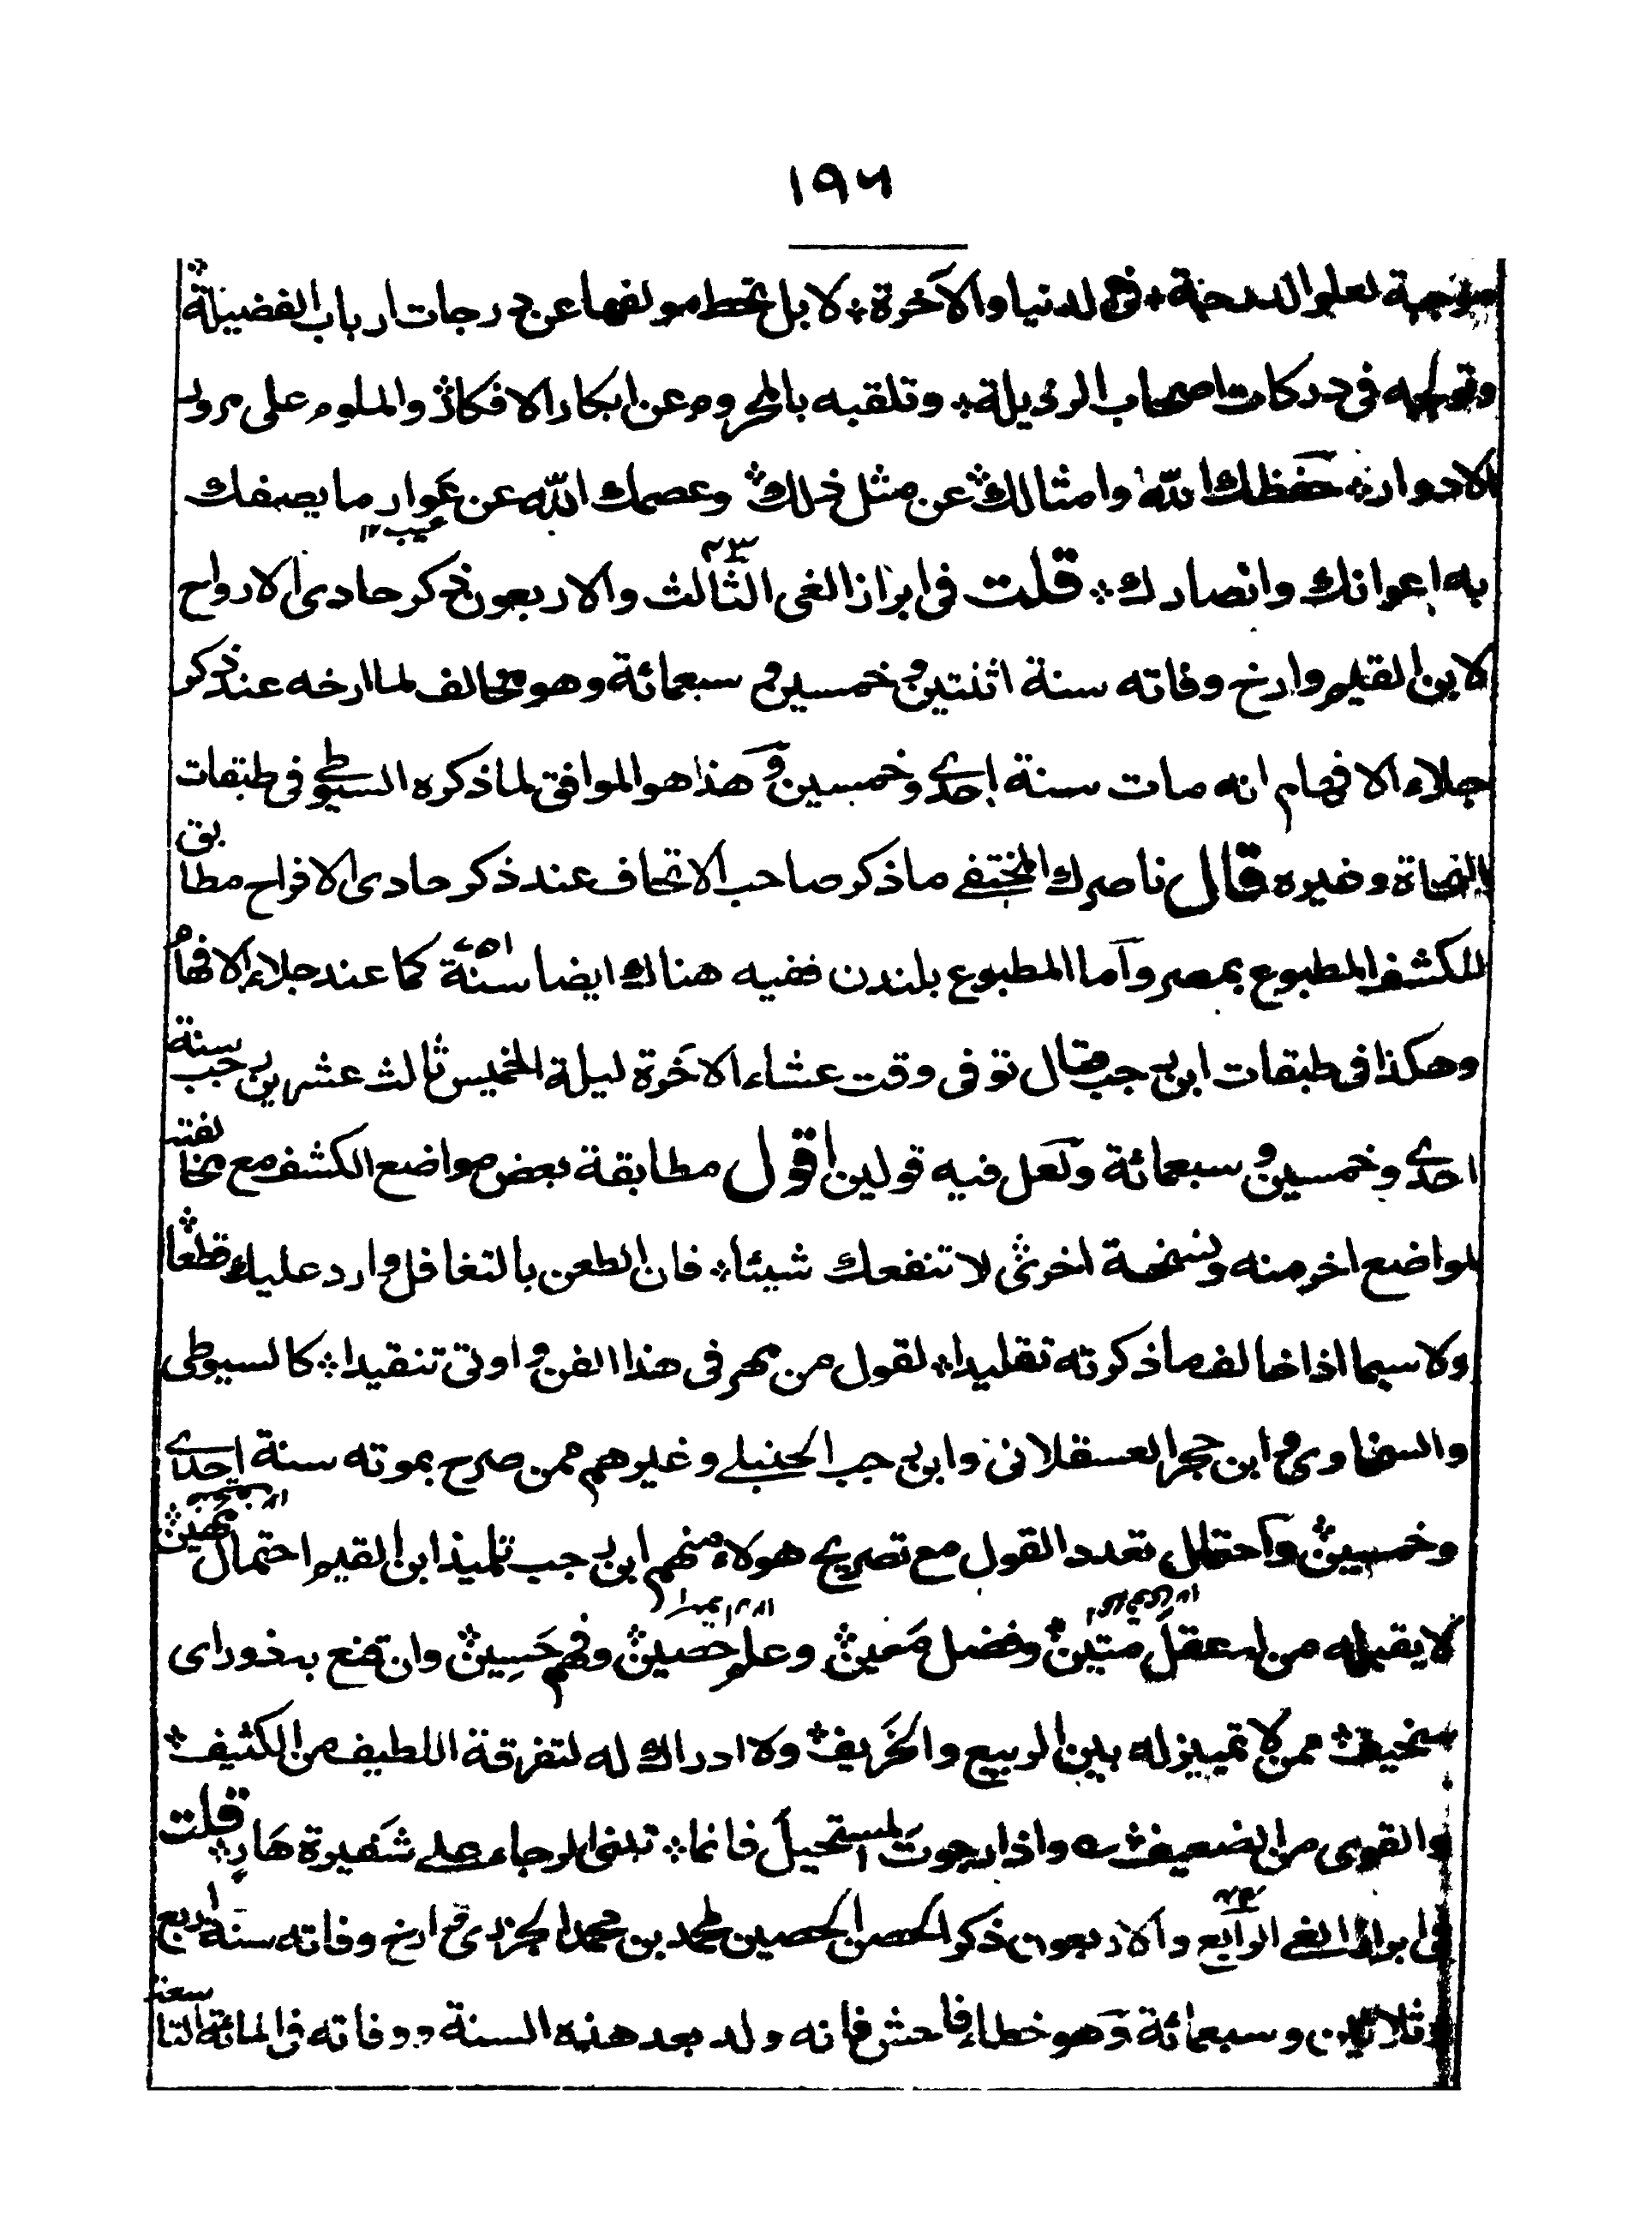 ١٩٦
موجبة لعلو الدرجة في الدنيا والآخرة لا بل تحط مولفها عن درجات ارباب الفضيلة
وتولجه في دركات اصحاب الرذيلة وتلقبه بالمحروم عن ابكار الافكار والملوم على مرور
الادوار حفظك الله وامثالك عن مثل ذلك وعصمك الله عن عَوار ما يصفك
عيب ١٢
به اعوانك وانصارك قلت في ابراز الغي الثالث والاربعون ذكر حادى الارواح
٤٣
لابن القيم وارخ وفاته سنة اثنتين وخمسين وسبعمائة وهو مخالف لما ارخه عند ذكر
جلاء الافهام انه مات سنة احدى وخمسين وهذا هو الموافق لما ذكره السيوطى فى طبقات
النحاة وغيره قال ناصرك المختفے ما ذكر صاحب الاتحاف عند ذكر حادى الافراح مطابق
للكشف المطبوع بمصر وآما المطبوع بلندن ففيه هناك ايضا سنة ٧٥١ كما عند جلاء الافهام
وهكذا فى طبقات ابن رجب قال توفى وقت عشاء الآخرة ليلة الخميس ثالث عشرين رجب سنة
احدى وخمسين وسبعمائة ولعل فيه قولين اقول مطابقة بعض مواضع الكشف مع مخالفته
لمواضع اخر منه ونسخة اخرى لا تنفعك شيئا فان الطعن بالتغافل وارد عليك قطعا
ولا سيما اذا خالف ما ذكرته تقليدا لقول من مهر فى هذا الفن واوتى تنقيدا كالسيوطى
والسخاوى وابن حجر العسقلانى وابن رجب الحنبلے وغيرهم ممن صرح بموته سنة احدى
وخمسين وآحتمال تعدد القول مع تصريح هولاء ومنهم ابن رجب تلميذ ابن القيم احتمال مهين
لا يقبله من له عقل متين وفضل مَعين وعلم حصين وفهم حَسِين وان قنع به ذو راى
سخيف ممن لا تمييز له بين الربيع والخَريف ولا ادراك له لتفرقة اللطيف من الكثيف
والقوى من الضعيف ے واذا رجوت المستحيل فانما تبنى الرجاء على شَفيرة هَارٍ قلت
فى ابراز الغے الرابع والاربعون ذكر الحصن الحصين لمحمد بن محمد الجزرى وارخ وفاته سنة اربع
٤٤
وثلاثين وسبعمائة وَهو خطاء فاحش فانه ولد بعد هذه السنة ووفاته فى المائة التاسعة